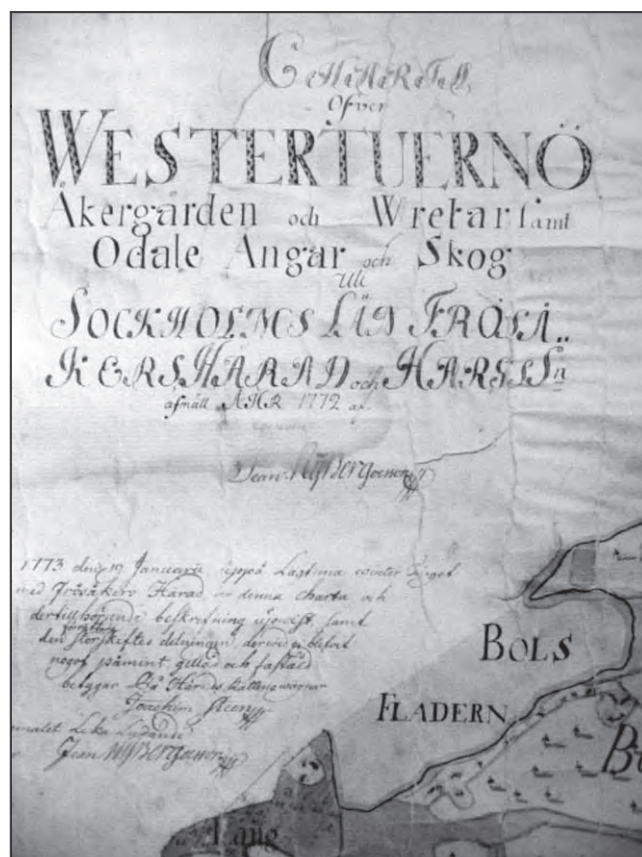 CHARTA
Öfver
WESTERTUERNÖ
Åkergården och Wretar samt
Odale Angar och Skog
Uti
SOCKHOLMS LÄN FRÖSÅ..
KERS HÄRAD och HARGS Sn
afmätt AHR 1772 af
Jean
1773 den 19 Januarii uppå Lagtima winter Tinget
med Frösåkers Härad är denna charta och
dertillhörande beskrifning upwist, samt
den storskiftes delningen
något påmint, gillad och faststäld
betygar På Härads Rättens wägnar
Joachim Steen
Lika Lydande
Jean
BOLS
FLADERN
Lång